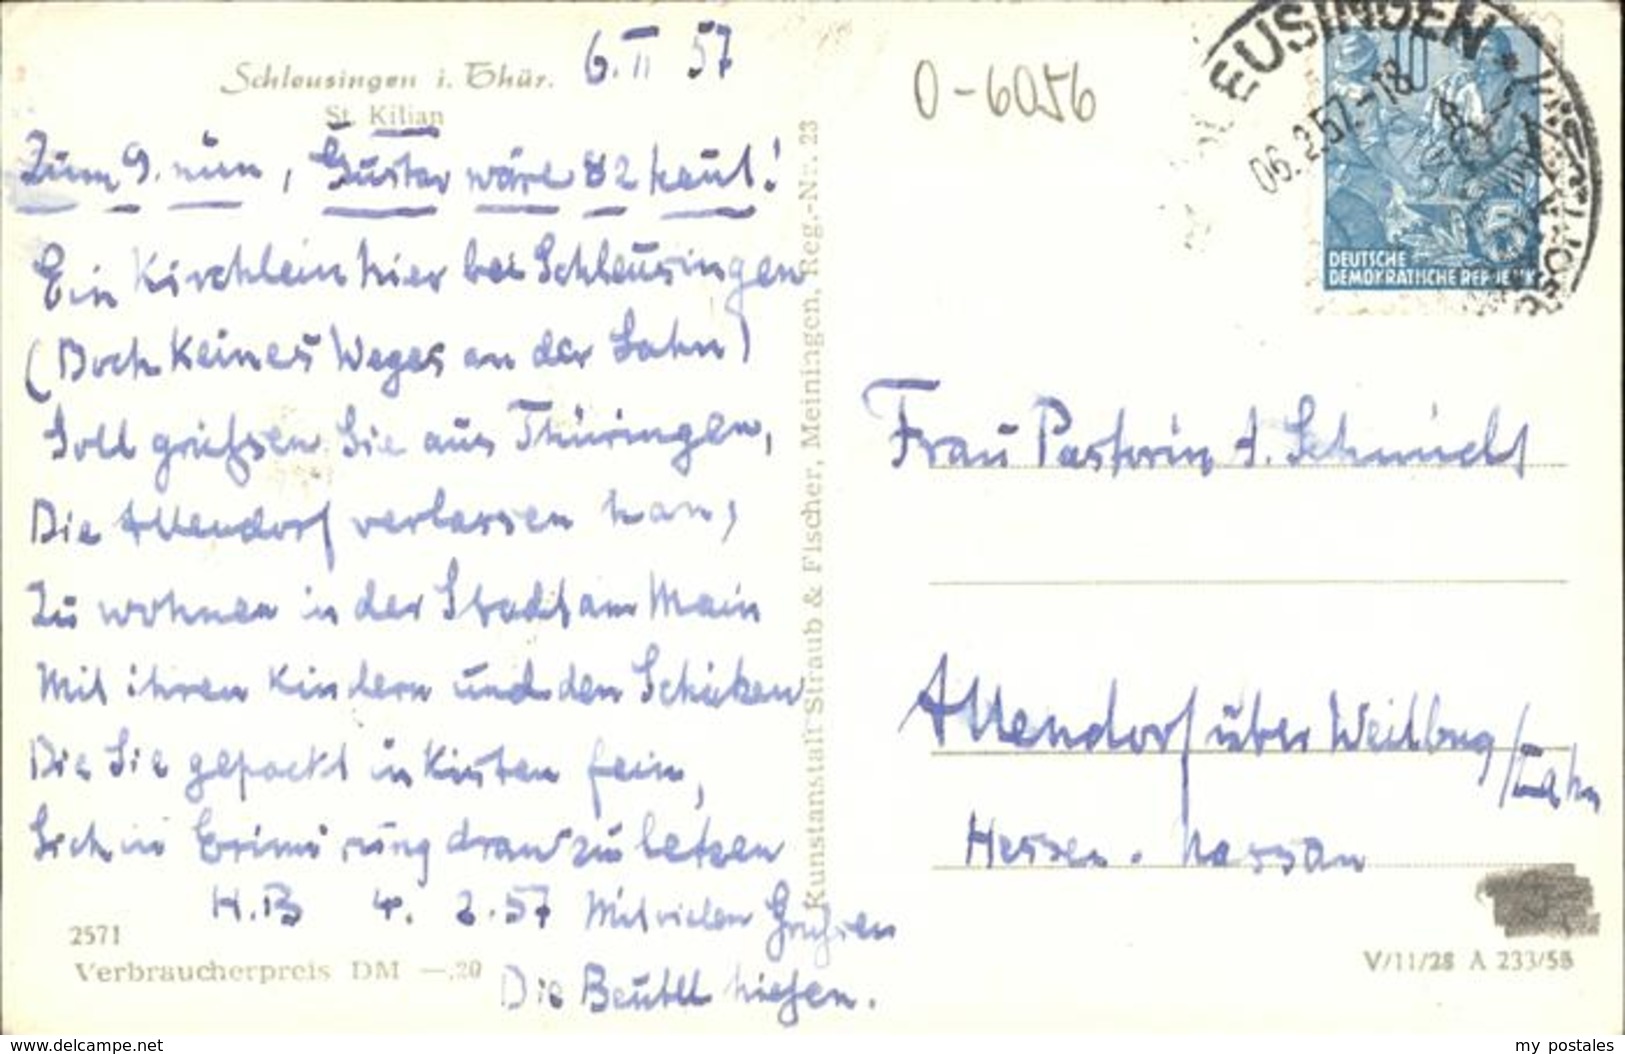 Schleusingen i. Thür.
St. Kilian
6. II 57
Zum 9. nun, Gustav wäre 82 heut!
Ein Kirchlein hier bei Schleusingen
(Doch keines Weges an der Lahn)
Soll grüßen Sie aus Thüringen,
Die Attendorf verlassen kan,
Zu wohnen in der Stadt am Main
Mit ihren Kindern und den
Die Sie gepackt in Kisten fein,
Sich in dran zu letzen
H.B 4. 2.57 Mit vielen Grüßen
Die
2571
Verbraucherpreis DM —,20
Kunstanstalt Straub & Fischer, Meiningen, Reg.-Nr. 23
0-6056
EUSINGEN
06.2.57.-18
DEUTSCHE
DEMOKRATISCHE REPUBLIK
Frau Pastorin A. Schmidt
Attendorf über Weilburg/Lahn
Hessen-Nassau
V/11/28 A 233/58
www.delcampe.net
my_postales